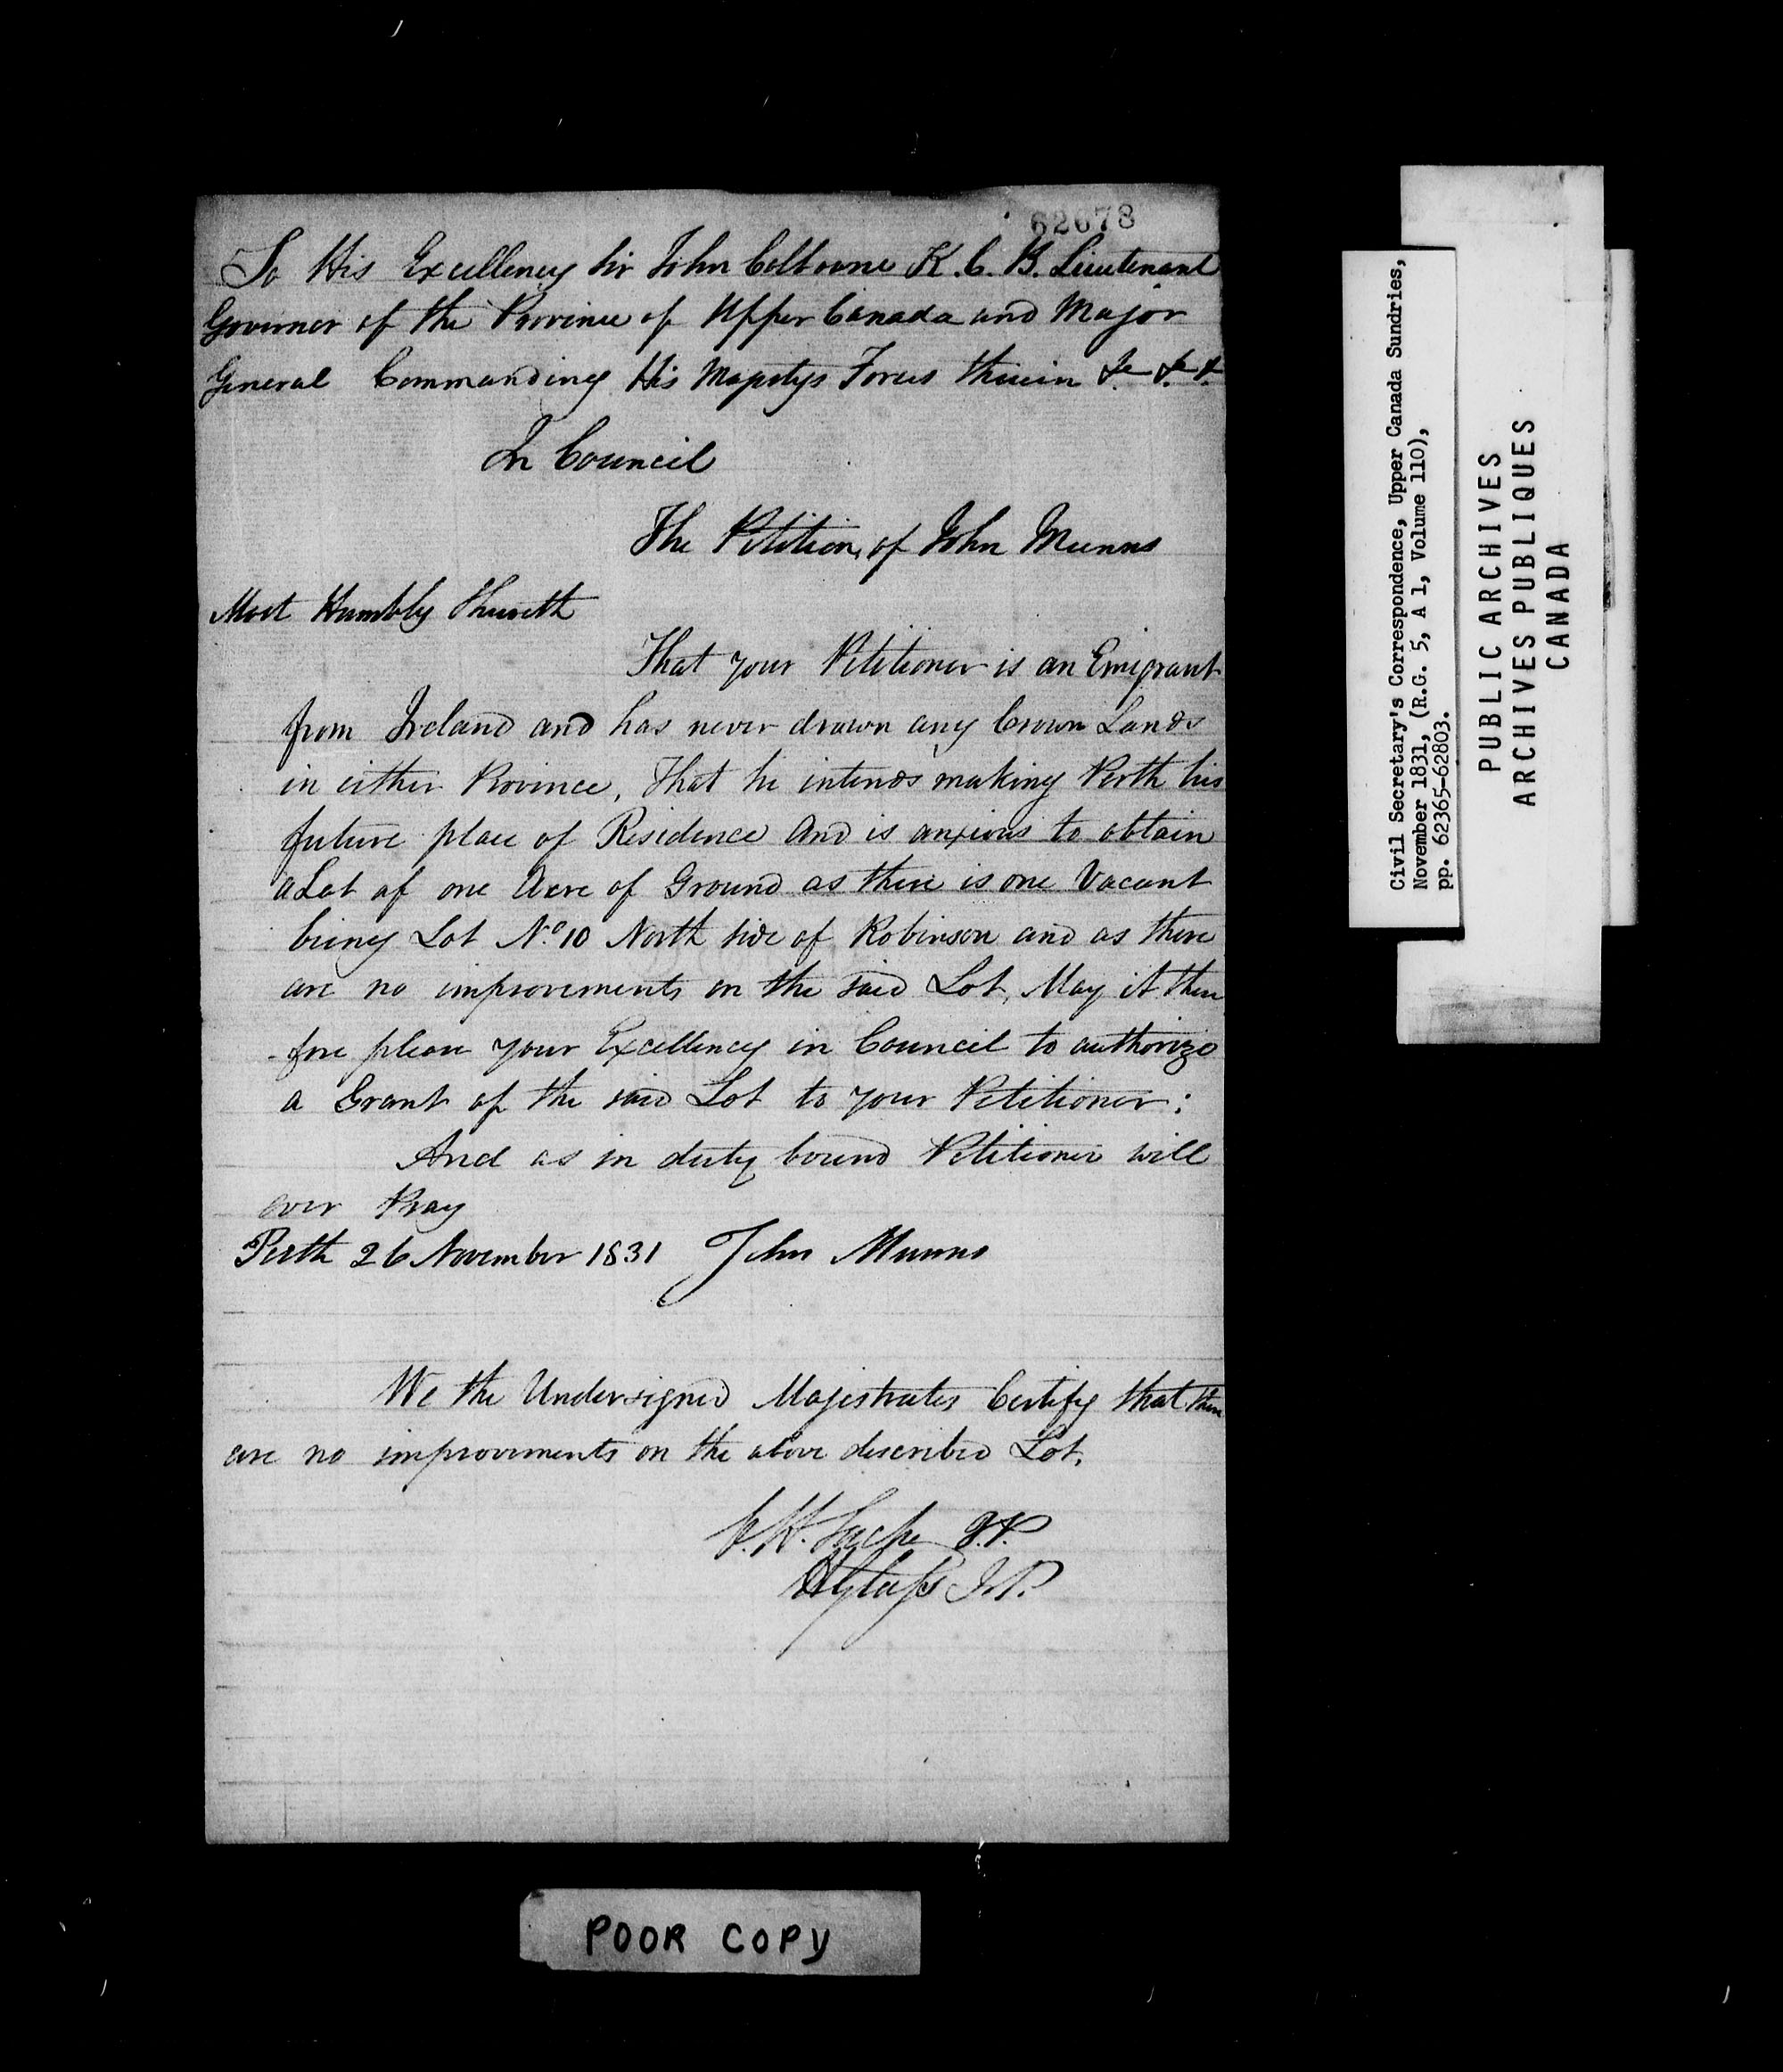 62678
To His Excellency Sir John Colborne K.C.B. Lieutenant
Governor of the Province of Upper Canada and Major
General Commanding His Majestys Forces therein &c &c &
In Council
The Petition, of John Munns
Most Humbly Sheweth
That your Petitioner is an Emigrant
from Ireland and has never drawn any Crown Lands
in either Province, That he intends making Perth his
future place of Residence And is anxious to obtain
a Lot of one Acre of Ground as there is one Vacant
being Lot No. 10 North side of Robinson and as there
are no improvements on the said Lot, May it there
-fore please your Excellency in Council to authorize
a Grant of the said Lot to your Petitioner:
And as in duty bound Petitioner will
ever Pray
Perth 26 November 1831 John Munns
We the Undersigned Majestrates Certify that there
are no improvements on the above described Lot.
J.P.
J.P.
Civil Secretary's Correspondence, Upper Canada Sundries,
November 1831, (R.G. 5, A 1, Volume 110),
pp. 62365-62803.
PUBLIC ARCHIVES
ARCHIVES PUBLIQUES
CANADA
POOR COPY